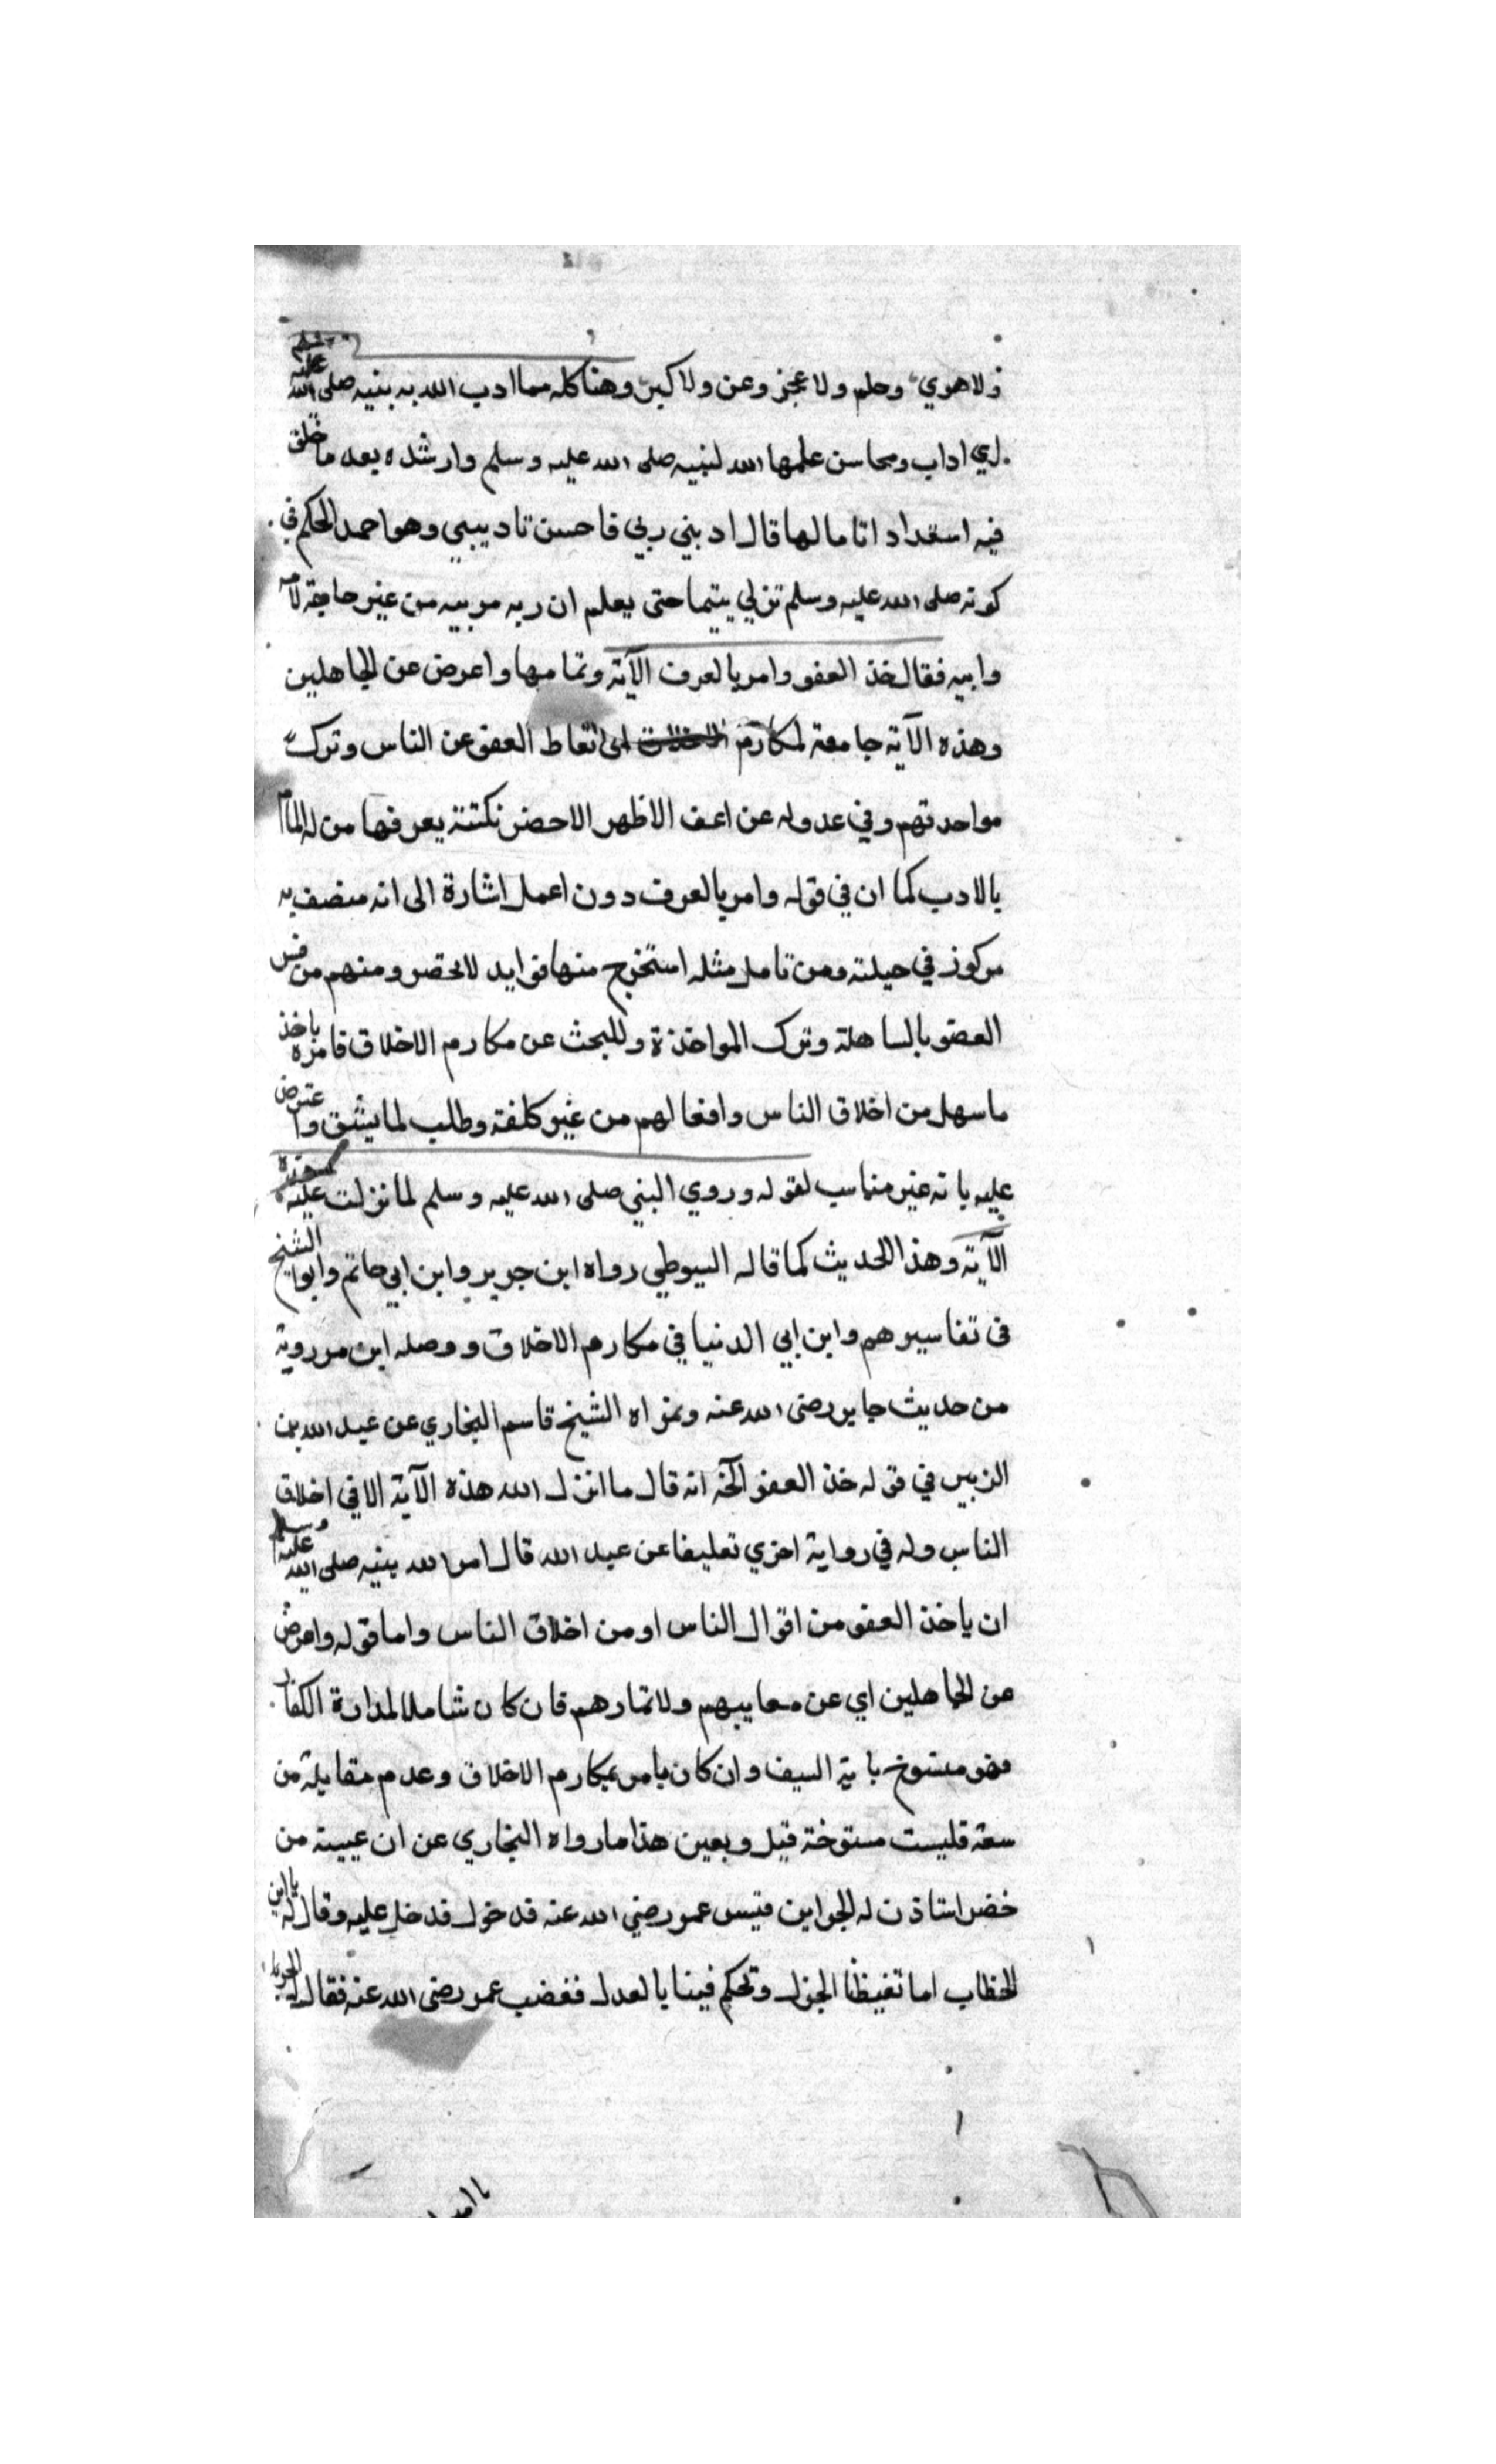 ولا هوي وحلم ولا عجز وعن ولا كبر وهنا كله مما ادب الله به بنيه صلى الله عليه وسلم
اي اداب ومحاسن علمها الله لنبيه صلى الله عليه وسلم وارشده بعد ما خلق
فيه استعداد اتاما لها قال ادبني ربي فاحسن تاديبي وهو احمد الحكم في
كونه صلى الله عليه وسلم تزلي يتيما حتى يعلم ان ربه مربيه من غير حاجة لامه
وابيه فقال خذ العفو وامر بالعرف الآية وتمامها واعرض عن الجاهلين
وهذه الآية جامعة لمكارم الاخلاق اي اتعاط العفو عن الناس وترك
مواخدتهم وفي عدوله عن اعف الاظهر الاحضر نكتة يعرفها من له المام
بالادب كما ان في قوله وامر بالعرف دون اعمل اشارة الى انه متصف به
مركوز في جبلته ومن تامل مثله استخرج منها فوايد لا تحصر ومنهم من فسر
العفو بالساهلة وترك المواخذة وللبحث عن مكارم الاخلاق فامره ياخذ
ما سهل من اخلاق الناس وافعالهم من غير كلفة وطلب لما يشق واعترض
عليه بانه غير مناسب لقوله وروي النبي صلى الله عليه وسلم لما نزلت عليه هذه
الآية وهذا الحديث كما قاله السيوطي رواه ابن جرير وابن ابي حاتم وابو الشيخ
في تفاسيرهم وابن ابي الدنيا في مكارم الاخلاق ووصله ابن مردوية
من حديث جابر رضى الله عنه وعزاه الشيخ قاسم البخاري عن عبد الله بن
الزبير في قوله خذ العفو الخ انه قال ما انزل الله هذه الآية الا في اخلاق
الناس وله في رواية اخري تعليقا عن عبد الله قال امر الله بنيه صلى الله عليه وسلم
ان ياخذ العفو من اقوال الناس او من اخلاق الناس واما قوله واعرض
عن الجاهلين اي عن معايبهم ولا تمارهم فان كان شاملا لمداراة الكفار
فهو منسوخ باية السيف وان كان يامر بمكارم الاخلاق وعدم مقابلة من
سفه فليست منسوخة قيل ويعين هذا ما رواه البخاري عن ان عيينة من
خضر استاذن له الجر ابن قيس عمر رضي الله عنه قد خول فدخل عليه وقال له يا ابن
الخطاب اما تغيظنا الجزل وتحكم فينا بالعدل فغضب عمر رضى الله عنه فقال الحر
يا امير